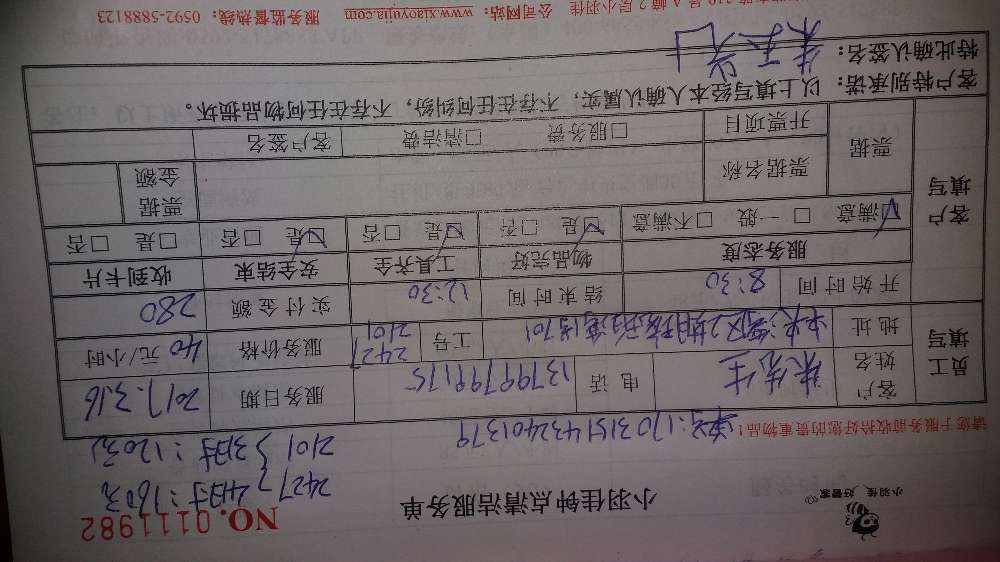 小羽佳 好管家
小羽佳钟点清洁服务单
NO.0111982
2427 } 4时:160元
2101 } 3时:120元
请您于服务前收拾好您的贵重物品!
单号:170315143240 1379
员工填写
客户姓名 朱先生 电话 13799799175 服务日期 2017.3.16
地址 工号 2427 2101 服务价格 40元/小时
开始时间 8:30 结束时间 12:30 实付金额 280
客户填写
服务态度 物品完好 工具齐全 安全结束 收到卡片
☑满意 □一般 □不满意 ☑是 □否 ☑是 □否 ☑是 □否 □是 □否
票据 票据名称 票据金额
开票项目 □服务费 □清洁费 客户签名
客户特别承诺:以上填写经本人确认属实,不存在任何纠纷,不存在任何物品损坏。
特此确认签名:
公司网站:www.xiaoyujia.com 服务监督热线:0592-5888123